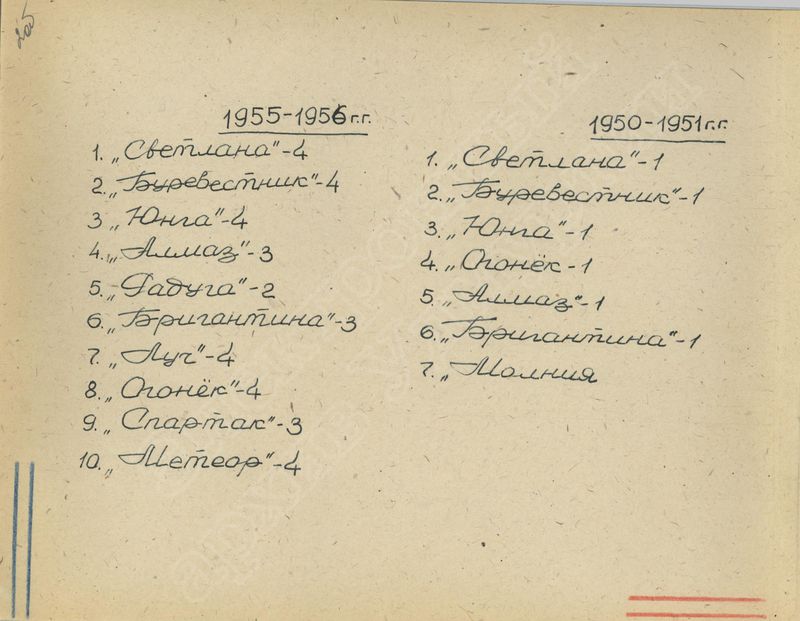 205
1955-1956 г.г.
1. „Светлана"-4
2. „Буревестник"-4
3 „Юнга"-4
4. „Алмаз"-3
5. „Радуга"-2
6. „Бригантина"-3
7. „Луч"-4
8. „Огонёк"-4
9. „Спартак"-3
10. „Метеор"-4
1950-1951 г.г.
1. „Светлана"-1
2. „Буревестник"-1
3. „Юнга"-1
4. „Огонёк-1
5. „Алмаз"-1
6. „Бригантина"-1
7. „Молния